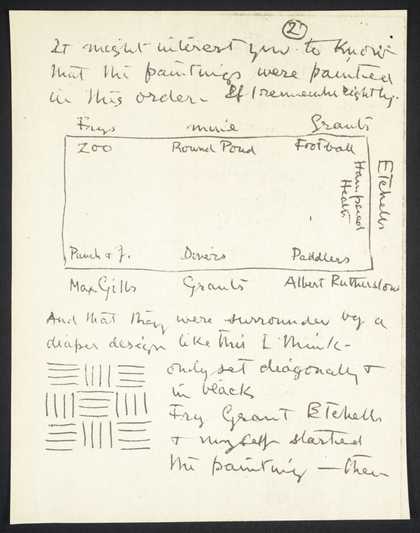 2
It might interest you to know
that the paintings were painted
in this order. If I remember rightly.
Frys mine Grants
Zoo Round Pond Football
Hampstead Heath
Etchells
Punch & J. Divers Paddlers
Max Gills Grants Albert Rutherston
And that they were surrounded by a
diaper design like this I think -
only set diagonally &
in blacks
Fry Grant Etchells
& myself started
the painting — then